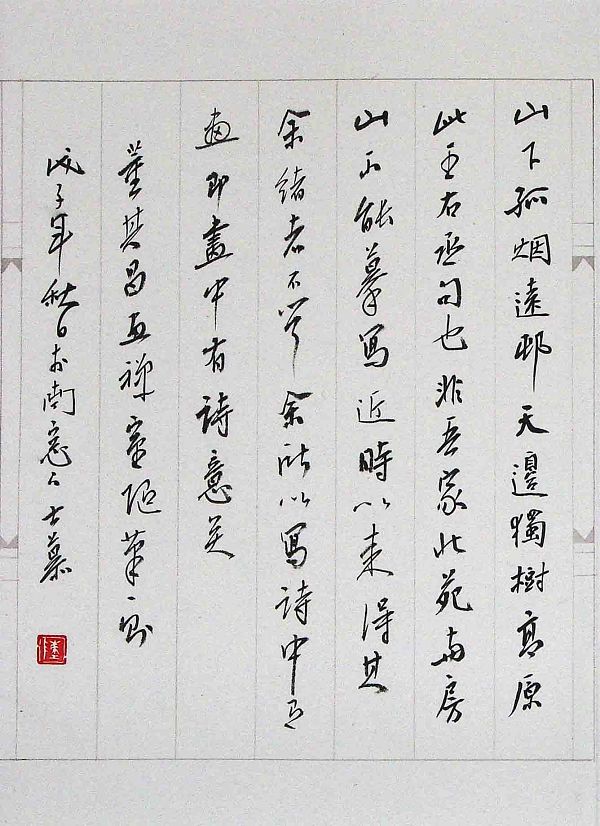 山下孤烟遠邨天邊獨樹高原
此王右丞句也非吾家北苑与房
山不能摹寫近時以来得其
余緒者不余所以寫詩中之
画即畫中有詩意矣
董其昌画禅室随筆一则
戊子年秋日於南窗士慕